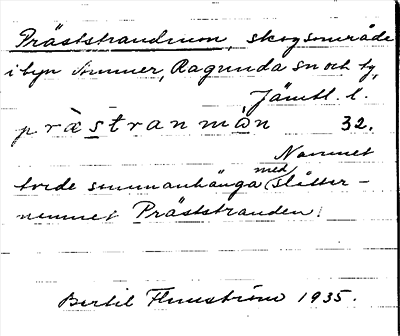 Präststrandmon, skogsområde
i byn Ammer, Ragunda sn och tg,
Jämtl. l.
pràstranmån 32.
Namnet
torde sammanhänga med slåtter-
namnet Präststranden.
Bertil Flemström 1935.